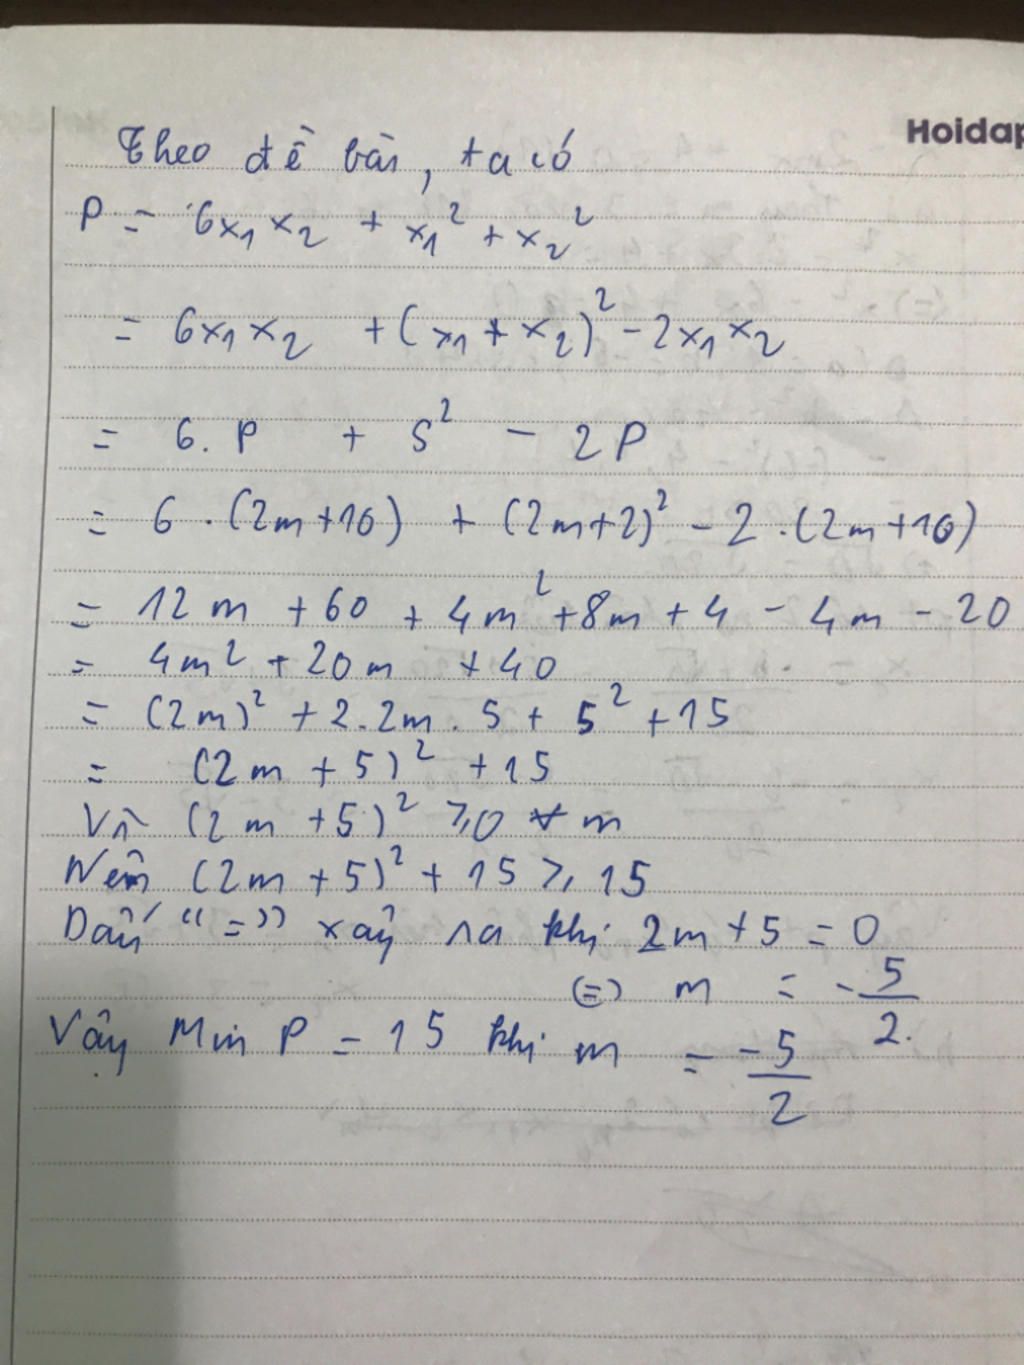 Hoidap
Theo đề bài, ta có
P = 6x₁x₂ + x₁² + x₂²
= 6x₁x₂ + (x₁ + x₂)² - 2x₁x₂
= 6. P + S² - 2P
= 6 . (2m+10) + (2m+2)² - 2 . (2m+10)
= 12m + 60 + 4m² + 8m + 4 - 4m - 20
= 4m² + 20m + 40
= (2m)² + 2.2m . 5 + 5² + 15
= (2m + 5)² + 15
Vì (2m + 5)² ⩾ 0 ∀ m
Nên (2m + 5)² + 15 ⩾ 15
Dấu "=" xảy ra khi 2m + 5 = 0
(=) m = -5/2.
Vậy Min P = 15 khi m = -5/2